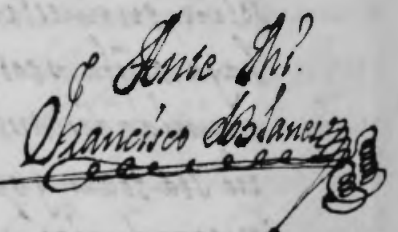 Ante Mi.
Francisco de Blancas